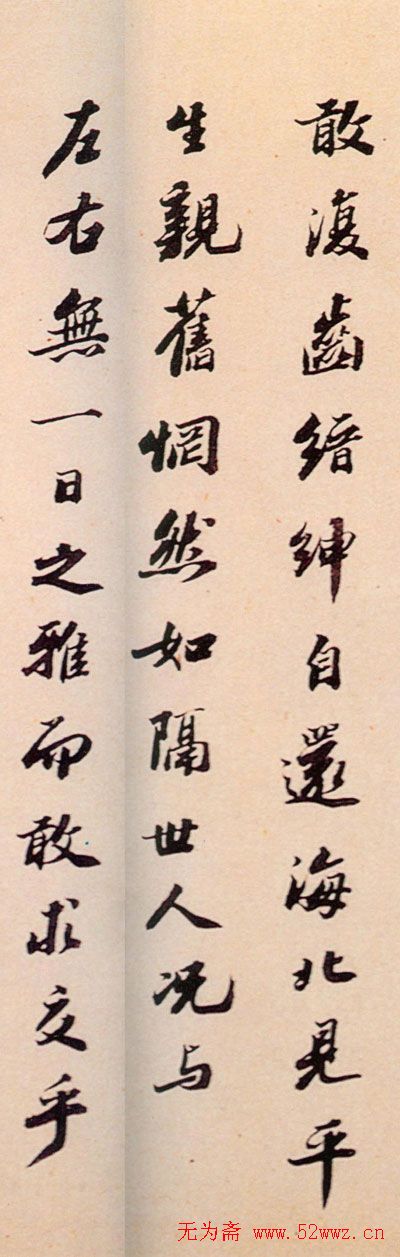 敢復齒縉紳自還海北見平
生親舊惘然如隔世人况与
左右無一日之雅而敢求交乎
无为斋 www.52wwz.cn